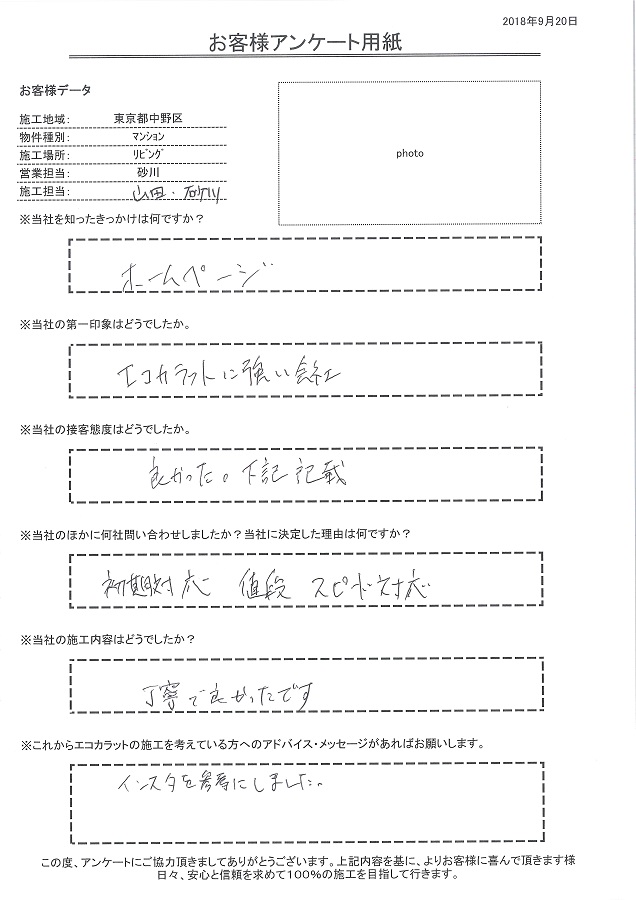 2018年9月20日
お客様アンケート用紙
お客様データ
施工地域: 東京都中野区
物件種別: マンション
施工場所: リビング
営業担当: 砂川
施工担当: 山田・砂川
photo
※当社を知ったきっかけは何ですか？
ホームページ
※当社の第一印象はどうでしたか。
エコカラットに強い会社
※当社の接客態度はどうでしたか。
良かった。下記記載
※当社のほかに何社問い合わせしましたか？当社に決定した理由は何ですか？
初期対応 値段 スピード対応
※当社の施工内容はどうでしたか？
丁寧で良かったです
※これからエコカラットの施工を考えている方へのアドバイス・メッセージがあればお願いします。
インスタを参考にしました。
この度、アンケートにご協力頂きましてありがとうございます。上記内容を基に、よりお客様に喜んで頂きます様
日々、安心と信頼を求めて100%の施工を目指して行きます。